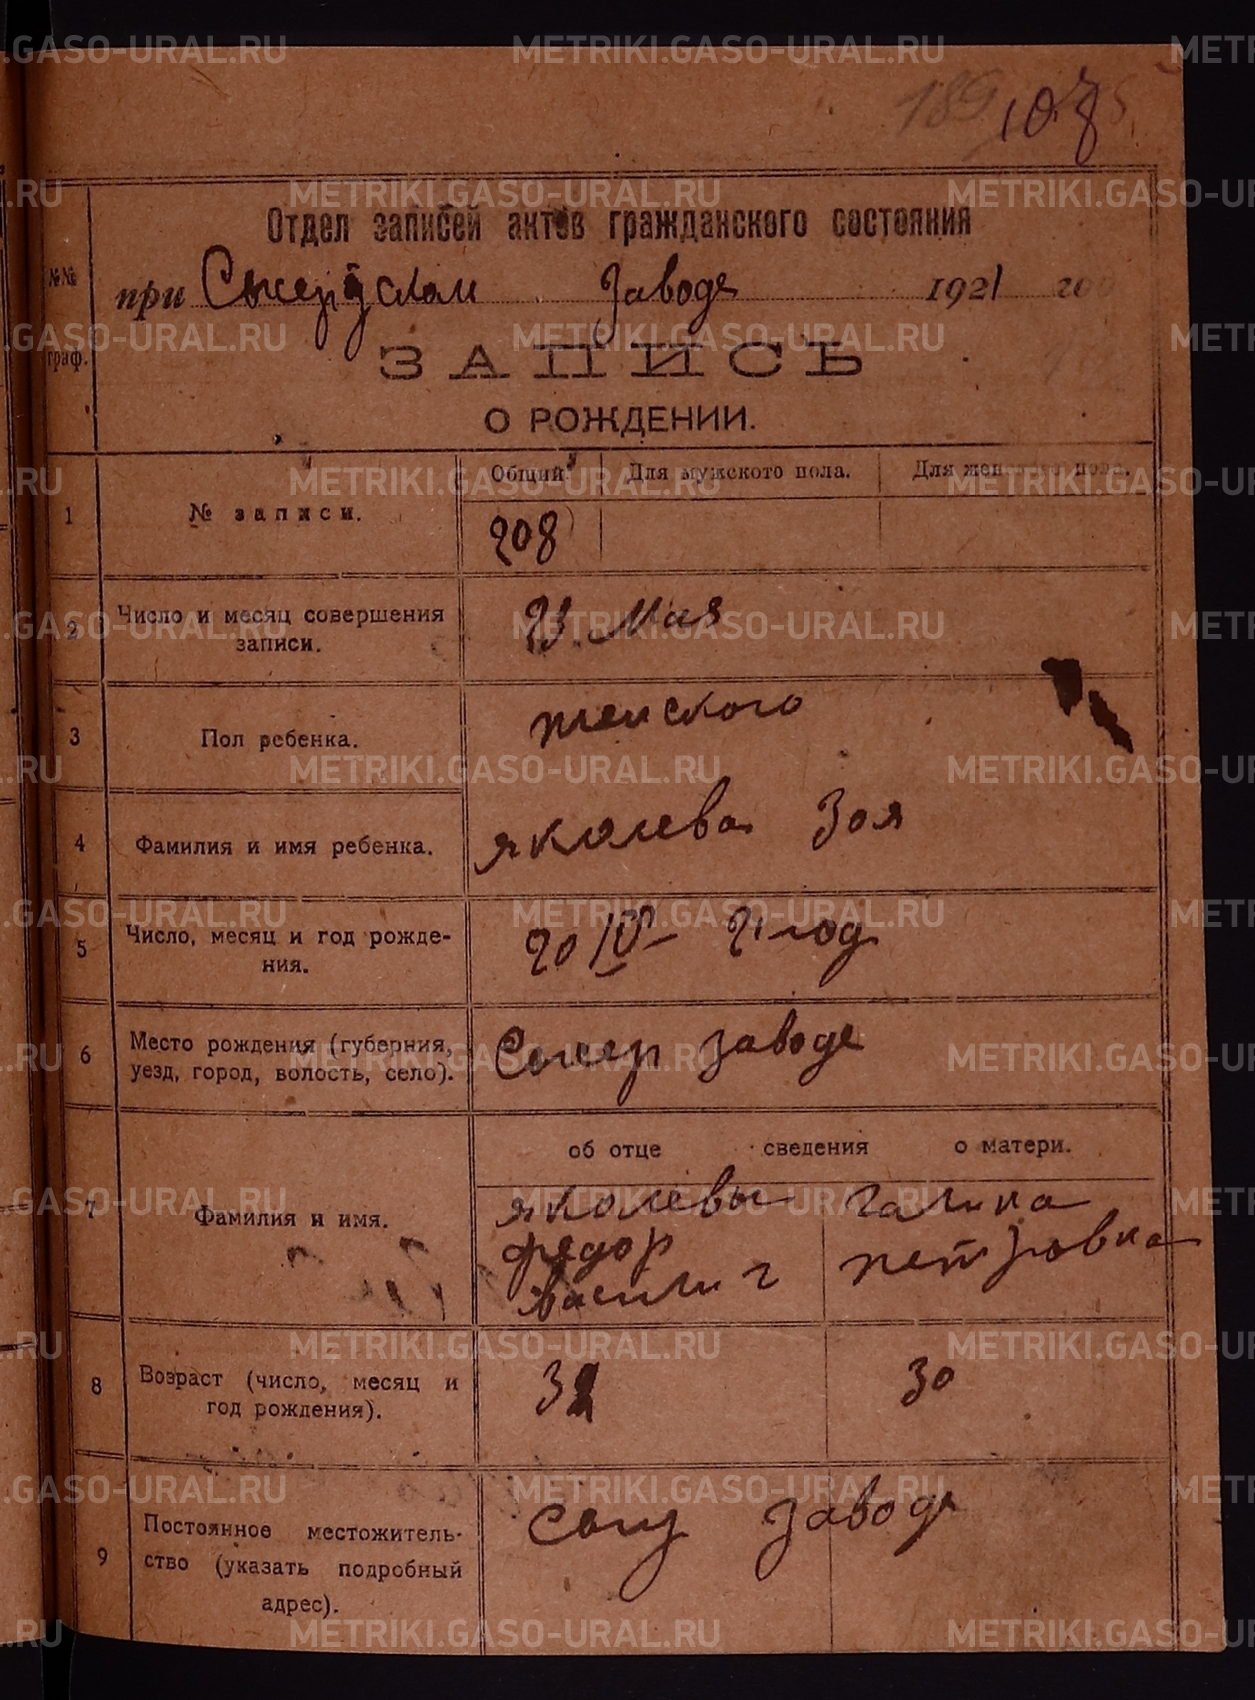 108
Отдел записей актов гражданского состояния
№№ граф.
при Сысертском заводе 1921 год
ЗАПИСЬ
О РОЖДЕНИИ.
Общий Для мужского пола. Для женского пола.
1 № записи. 208
2 Число и месяц совершения записи. 23. Мая
3 Пол ребенка. женского
4 Фамилия и имя ребенка. Яколева Зоя
5 Число, месяц и год рождения. 20 IV – 21 год
6 Место рождения (губерния, уезд, город, волость, село). Сысер заводе
об отце сведения о матери.
7 Фамилия и имя.
Яколевы Галина
Федор Петровна
8 Возраст (число, месяц и год рождения). 30
9 Постоянное местожительство (указать подробный адрес). заводе
METRIKI.GASO-URAL.RU